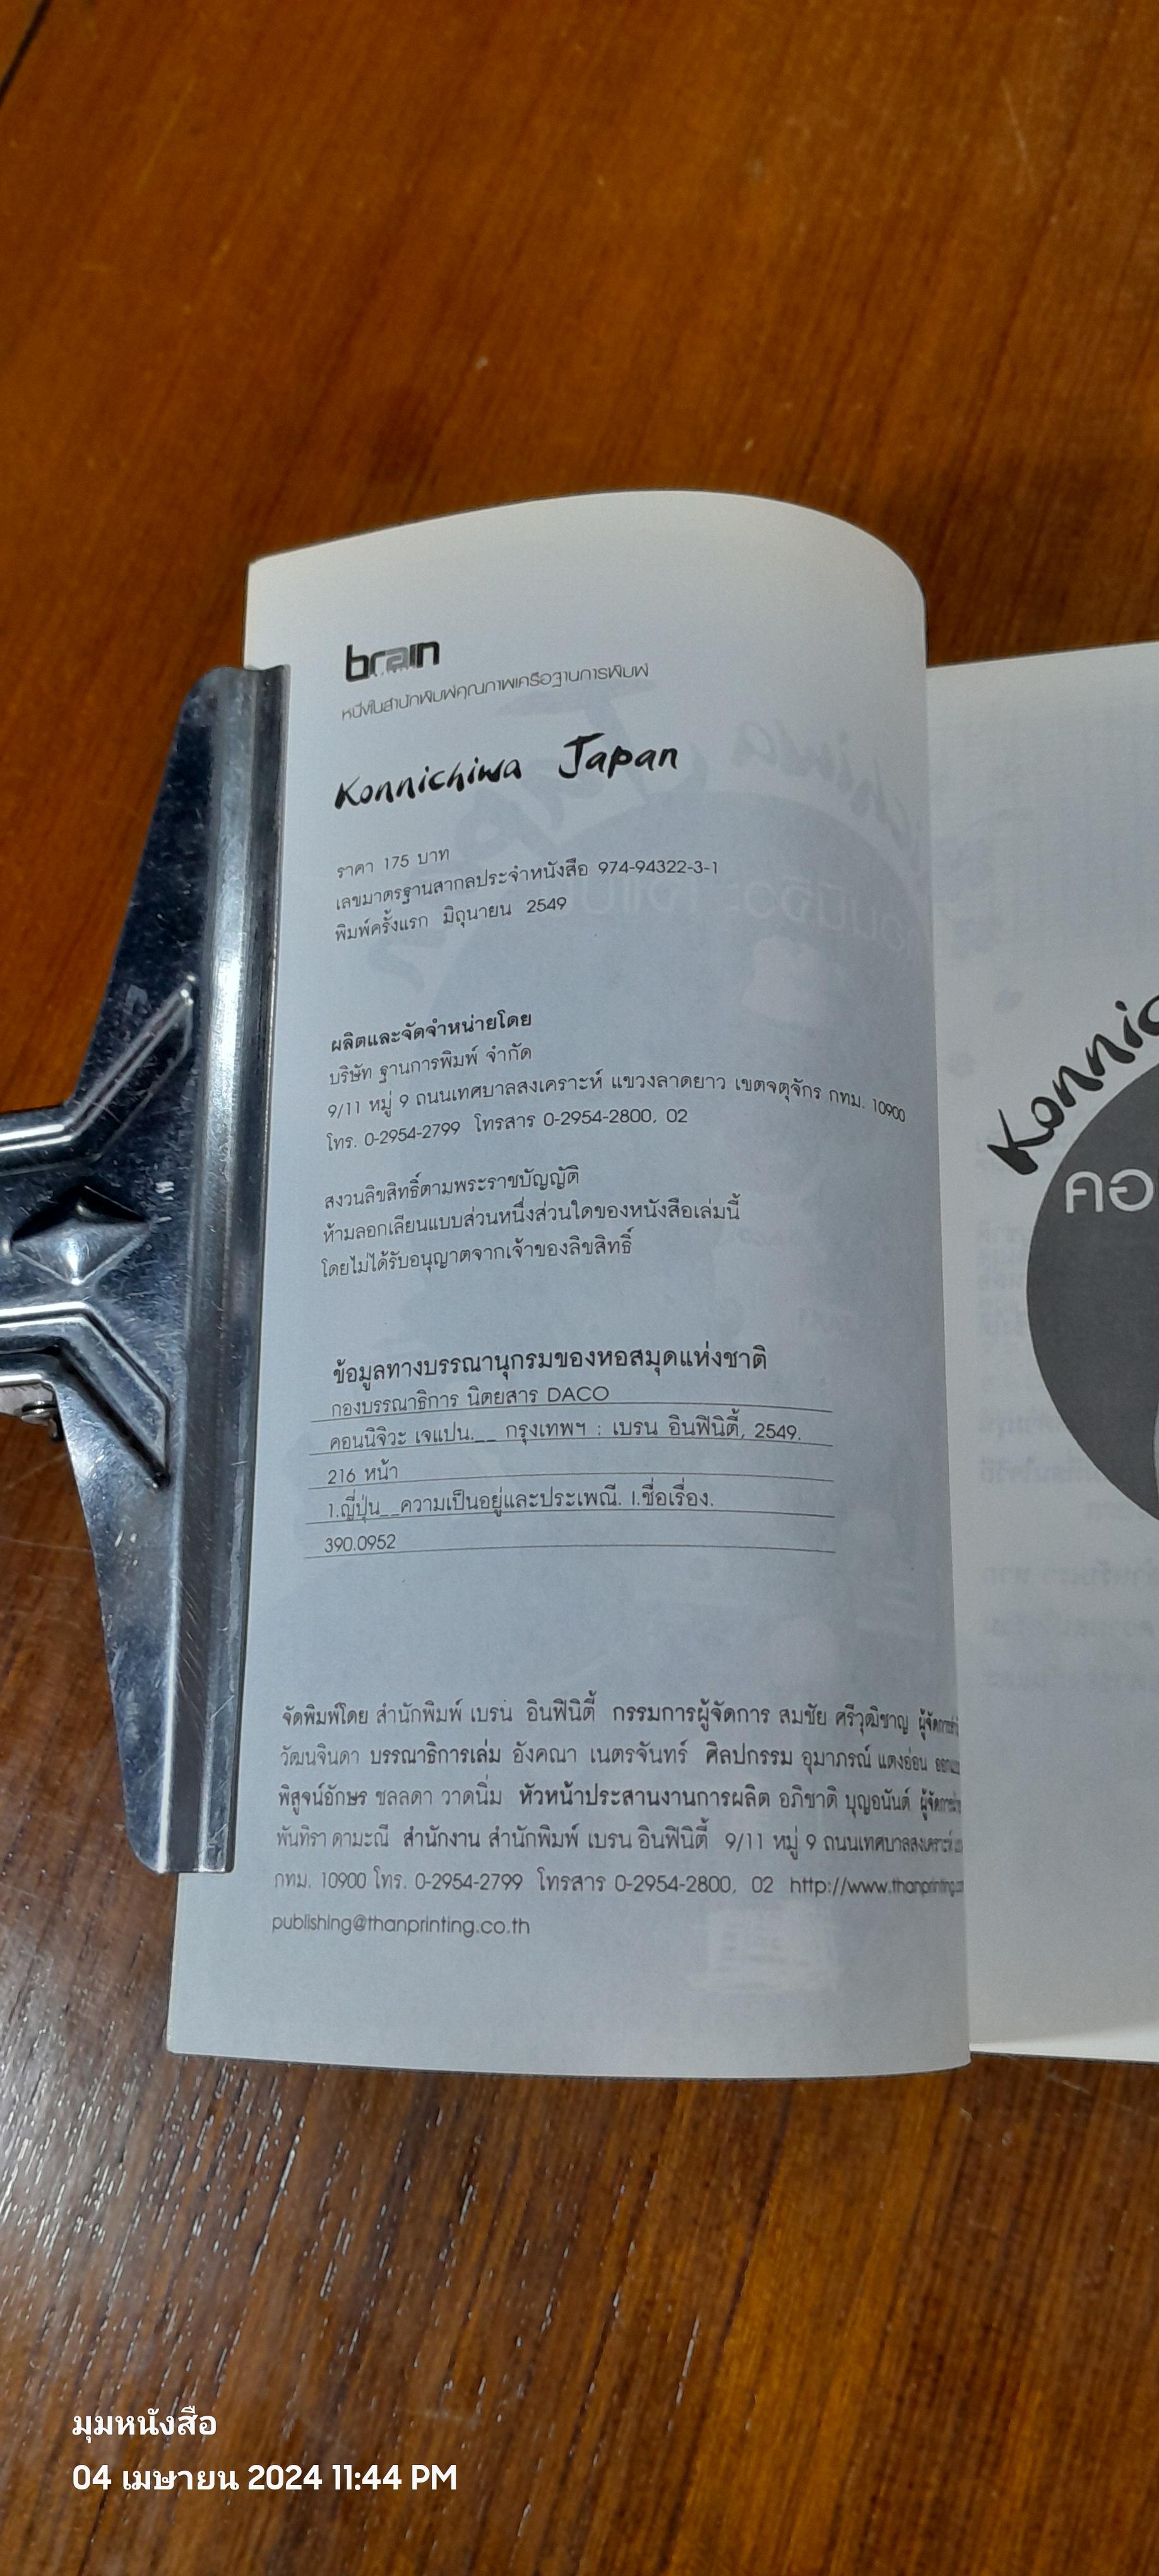 brain
หนึ่งในสำนักพิมพ์คุณภาพเครือฐานการพิมพ์
Konnichiwa Japan
ราคา 175 บาท
เลขมาตรฐานสากลประจำหนังสือ 974-94322-3-1
พิมพ์ครั้งแรก มิถุนายน 2549
ผลิตและจัดจำหน่ายโดย
บริษัท ฐานการพิมพ์ จำกัด
9/11 หมู่ 9 ถนนเทศบาลสงเคราะห์ แขวงลาดยาว เขตจตุจักร กทม. 10900
โทร. 0-2954-2799 โทรสาร 0-2954-2800, 02
สงวนลิขสิทธิ์ตามพระราชบัญญัติ
ห้ามลอกเลียนแบบส่วนหนึ่งส่วนใดของหนังสือเล่มนี้
โดยไม่ได้รับอนุญาตจากเจ้าของลิขสิทธิ์
ข้อมูลทางบรรณานุกรมของหอสมุดแห่งชาติ
กองบรรณาธิการ นิตยสาร DACO
คอนนิจิวะ เจแปน.__ กรุงเทพฯ : เบรน อินฟินิตี้, 2549.
216 หน้า
1.ญี่ปุ่น__ความเป็นอยู่และประเพณี. I.ชื่อเรื่อง.
390.0952
จัดพิมพ์โดย สำนักพิมพ์ เบรน อินฟินิตี้ กรรมการผู้จัดการ สมชัย ศรีวุฒิชาญ
วัฒนจินดา บรรณาธิการเล่ม อังคณา เนตรจันทร์ ศิลปกรรม อุมาภรณ์ แตงอ่อน
พิสูจน์อักษร ชลลดา วาดนิ่ม หัวหน้าประสานงานการผลิต อภิชาติ บุญอนันต์
พันทิรา ดามะณี สำนักงาน สำนักพิมพ์ เบรน อินฟินิตี้ 9/11 หมู่ 9 ถนนเทศบาลสงเคราะห์
กทม. 10900 โทร. 0-2954-2799 โทรสาร 0-2954-2800, 02 http://www.thanprinting.co
publishing@thanprinting.co.th
Konnic
คอ
มุมหนังสือ
04 เมษายน 2024 11:44 PM